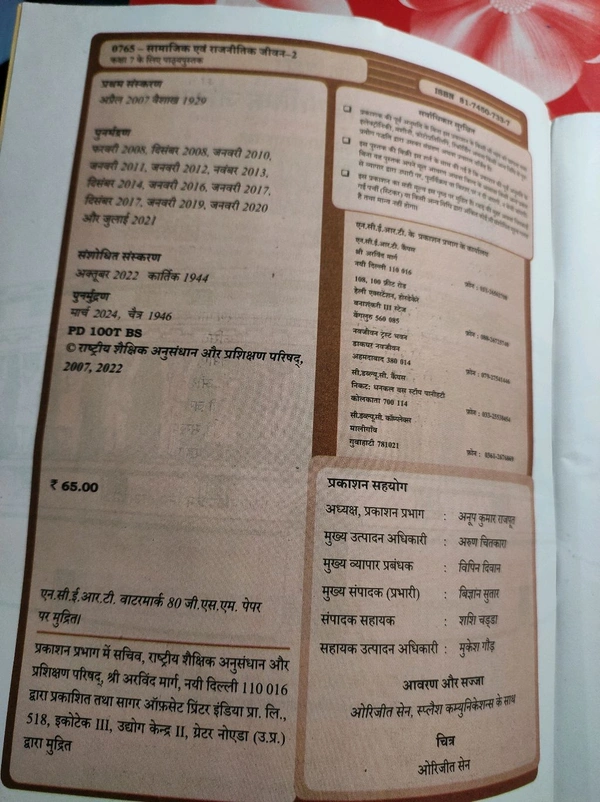 0765 – सामाजिक एवं राजनीतिक जीवन–2
कक्षा 7 के लिए पाठ्यपुस्तक
ISBN 81-7450-733-7
प्रथम संस्करण
अप्रैल 2007 वैशाख 1929
पुनर्मुद्रण
फरवरी 2008, दिसंबर 2008, जनवरी 2010,
जनवरी 2011, जनवरी 2012, नवंबर 2013,
दिसंबर 2014, जनवरी 2016, जनवरी 2017,
दिसंबर 2017, जनवरी 2019, जनवरी 2020
और जुलाई 2021
संशोधित संस्करण
अक्तूबर 2022 कार्तिक 1944
पुनर्मुद्रण
मार्च 2024, चैत्र 1946
PD 100T BS
© राष्ट्रीय शैक्षिक अनुसंधान और प्रशिक्षण परिषद्,
2007, 2022
₹ 65.00
एन.सी.ई.आर.टी. वाटरमार्क 80 जी.एस.एम. पेपर
पर मुद्रित।
प्रकाशन प्रभाग में सचिव, राष्ट्रीय शैक्षिक अनुसंधान और
प्रशिक्षण परिषद्, श्री अरविंद मार्ग, नयी दिल्ली 110 016
द्वारा प्रकाशित तथा सागर ऑफ़सेट प्रिंटर इंडिया प्रा. लि.,
518, इकोटेक III, उद्योग केन्द्र II, ग्रेटर नोएडा (उ.प्र.)
द्वारा मुद्रित
सर्वाधिकार सुरक्षित
एन.सी.ई.आर.टी. के प्रकाशन प्रभाग के कार्यालय
एन.सी.ई.आर.टी. कैंपस
श्री अरविंद मार्ग
नयी दिल्ली 110 016
108, 100 फ़ीट रोड
हेली एक्सटेंशन, होस्डेकेरे
बनाशंकरी III स्टेज
बेंगलुरु 560 085
नवजीवन ट्रस्ट भवन
डाकघर नवजीवन
अहमदाबाद 380 014
सी.डब्ल्यू.सी. कैंपस
निकट: धनकल बस स्टॉप पानीहटी
कोलकाता 700 114
सी.डब्ल्यू.सी. कॉम्प्लेक्स
मालीगाँव
गुवाहाटी 781021
प्रकाशन सहयोग
अध्यक्ष, प्रकाशन प्रभाग : अनूप कुमार राजपूत
मुख्य उत्पादन अधिकारी : अरुण चितकारा
मुख्य व्यापार प्रबंधक : विपिन दिवान
मुख्य संपादक (प्रभारी) : बिज्ञान सुतार
संपादक सहायक : शशि चड्डा
सहायक उत्पादन अधिकारी : मुकेश गौड़
आवरण और सज्जा
ओरिजीत सेन, स्प्लैश कम्युनिकेशन्स के साथ
चित्र
ओरिजीत सेन